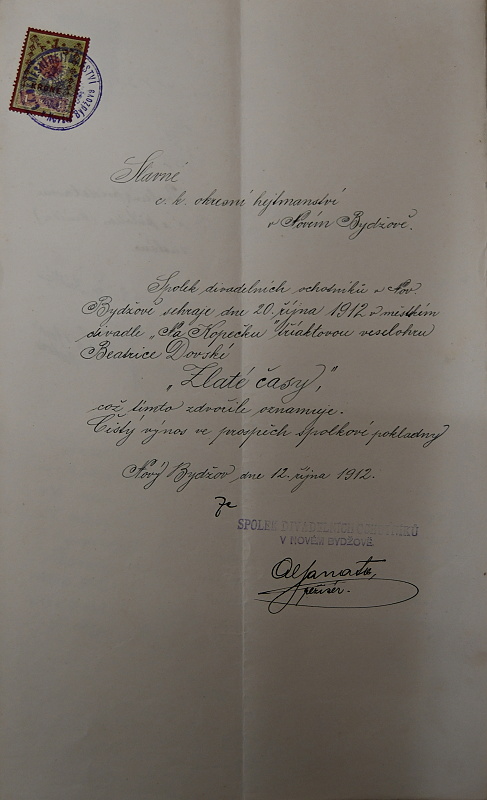 Slavné
c. k. okresní hejtmanství
v Novém Bydžově.
Spolek divadelních ochotníků v Nov.
Bydžově sehraje dne 20. října 1912 v městském
divadle „Na Kopečku" tříaktovou veselohru
Beatrice Dovské
„Zlaté časy,"
což tímto zdvořile oznamuje.
Čistý výnos ve prospěch spolkové pokladny
Nový Bydžov, dne 12. října 1912.
Za
SPOLEK DIVADELNÍCH OCHOTNÍKŮ
V NOVÉM BYDŽOVĚ.
režisér.